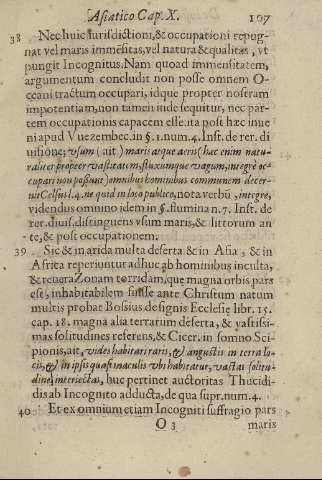 Asiatico Cap. X. 107
38 Nec huic iurisdictioni, & occupationi repug-
nat vel maris immēsitas, vel natura & qualitas, vt
pungit Incognitus. Nam quoad immensitatem,
argumentum concludit non posse omnem O-
ceani tractum occupari, idque propter nostram
impotentiam, non tamen inde sequitur, nec par-
tem occupationis capacem esse. ita post hæc inue
ni apud Vuezembec. in §. 1. num. 4. Inst. de rer. di
uisione; vsum (ait) maris æque aeris (hæc enim natu-
raliter propter vastitatem, fluxumque vagum, integrè oc-
cupari non possunt) omnibus hominibus communem decer-
nit Celsus l. 4. ne quid in loco publico, nota verbū, integrè,
videndus omnino idem in §. flumina n. 7. Inst. de
rer. diuis. distinguens vsum maris, & littorum an
te, & post occupationem.
39 Sic & in arida multa deserta & in Asia, & in
Africa reperiuntur adhuc ab hominibus inculta,
& reuera Zonam torridam, que magna orbis pars
est, inhabitabilem fuisse ante Christum natum
multis probat Bossius de signis Ecclesię lib. 15.
cap. 18. magna alia terrarum deserta, & vastissi-
mas solitudines referens, & Cicer. in somno Sci-
pionis, ait, vides habitari raris, & angustis in terra lo-
cis, & in ipsis quasi maculis vbi habitatur, vastas solitu-
dines interiectas, huc pertinet auctoritas Thucidi-
dis ab Incognito adducta, de qua supr. num. 4.
40 Et ex omnium etiam Incogniti suffragio pars
O 3 maris